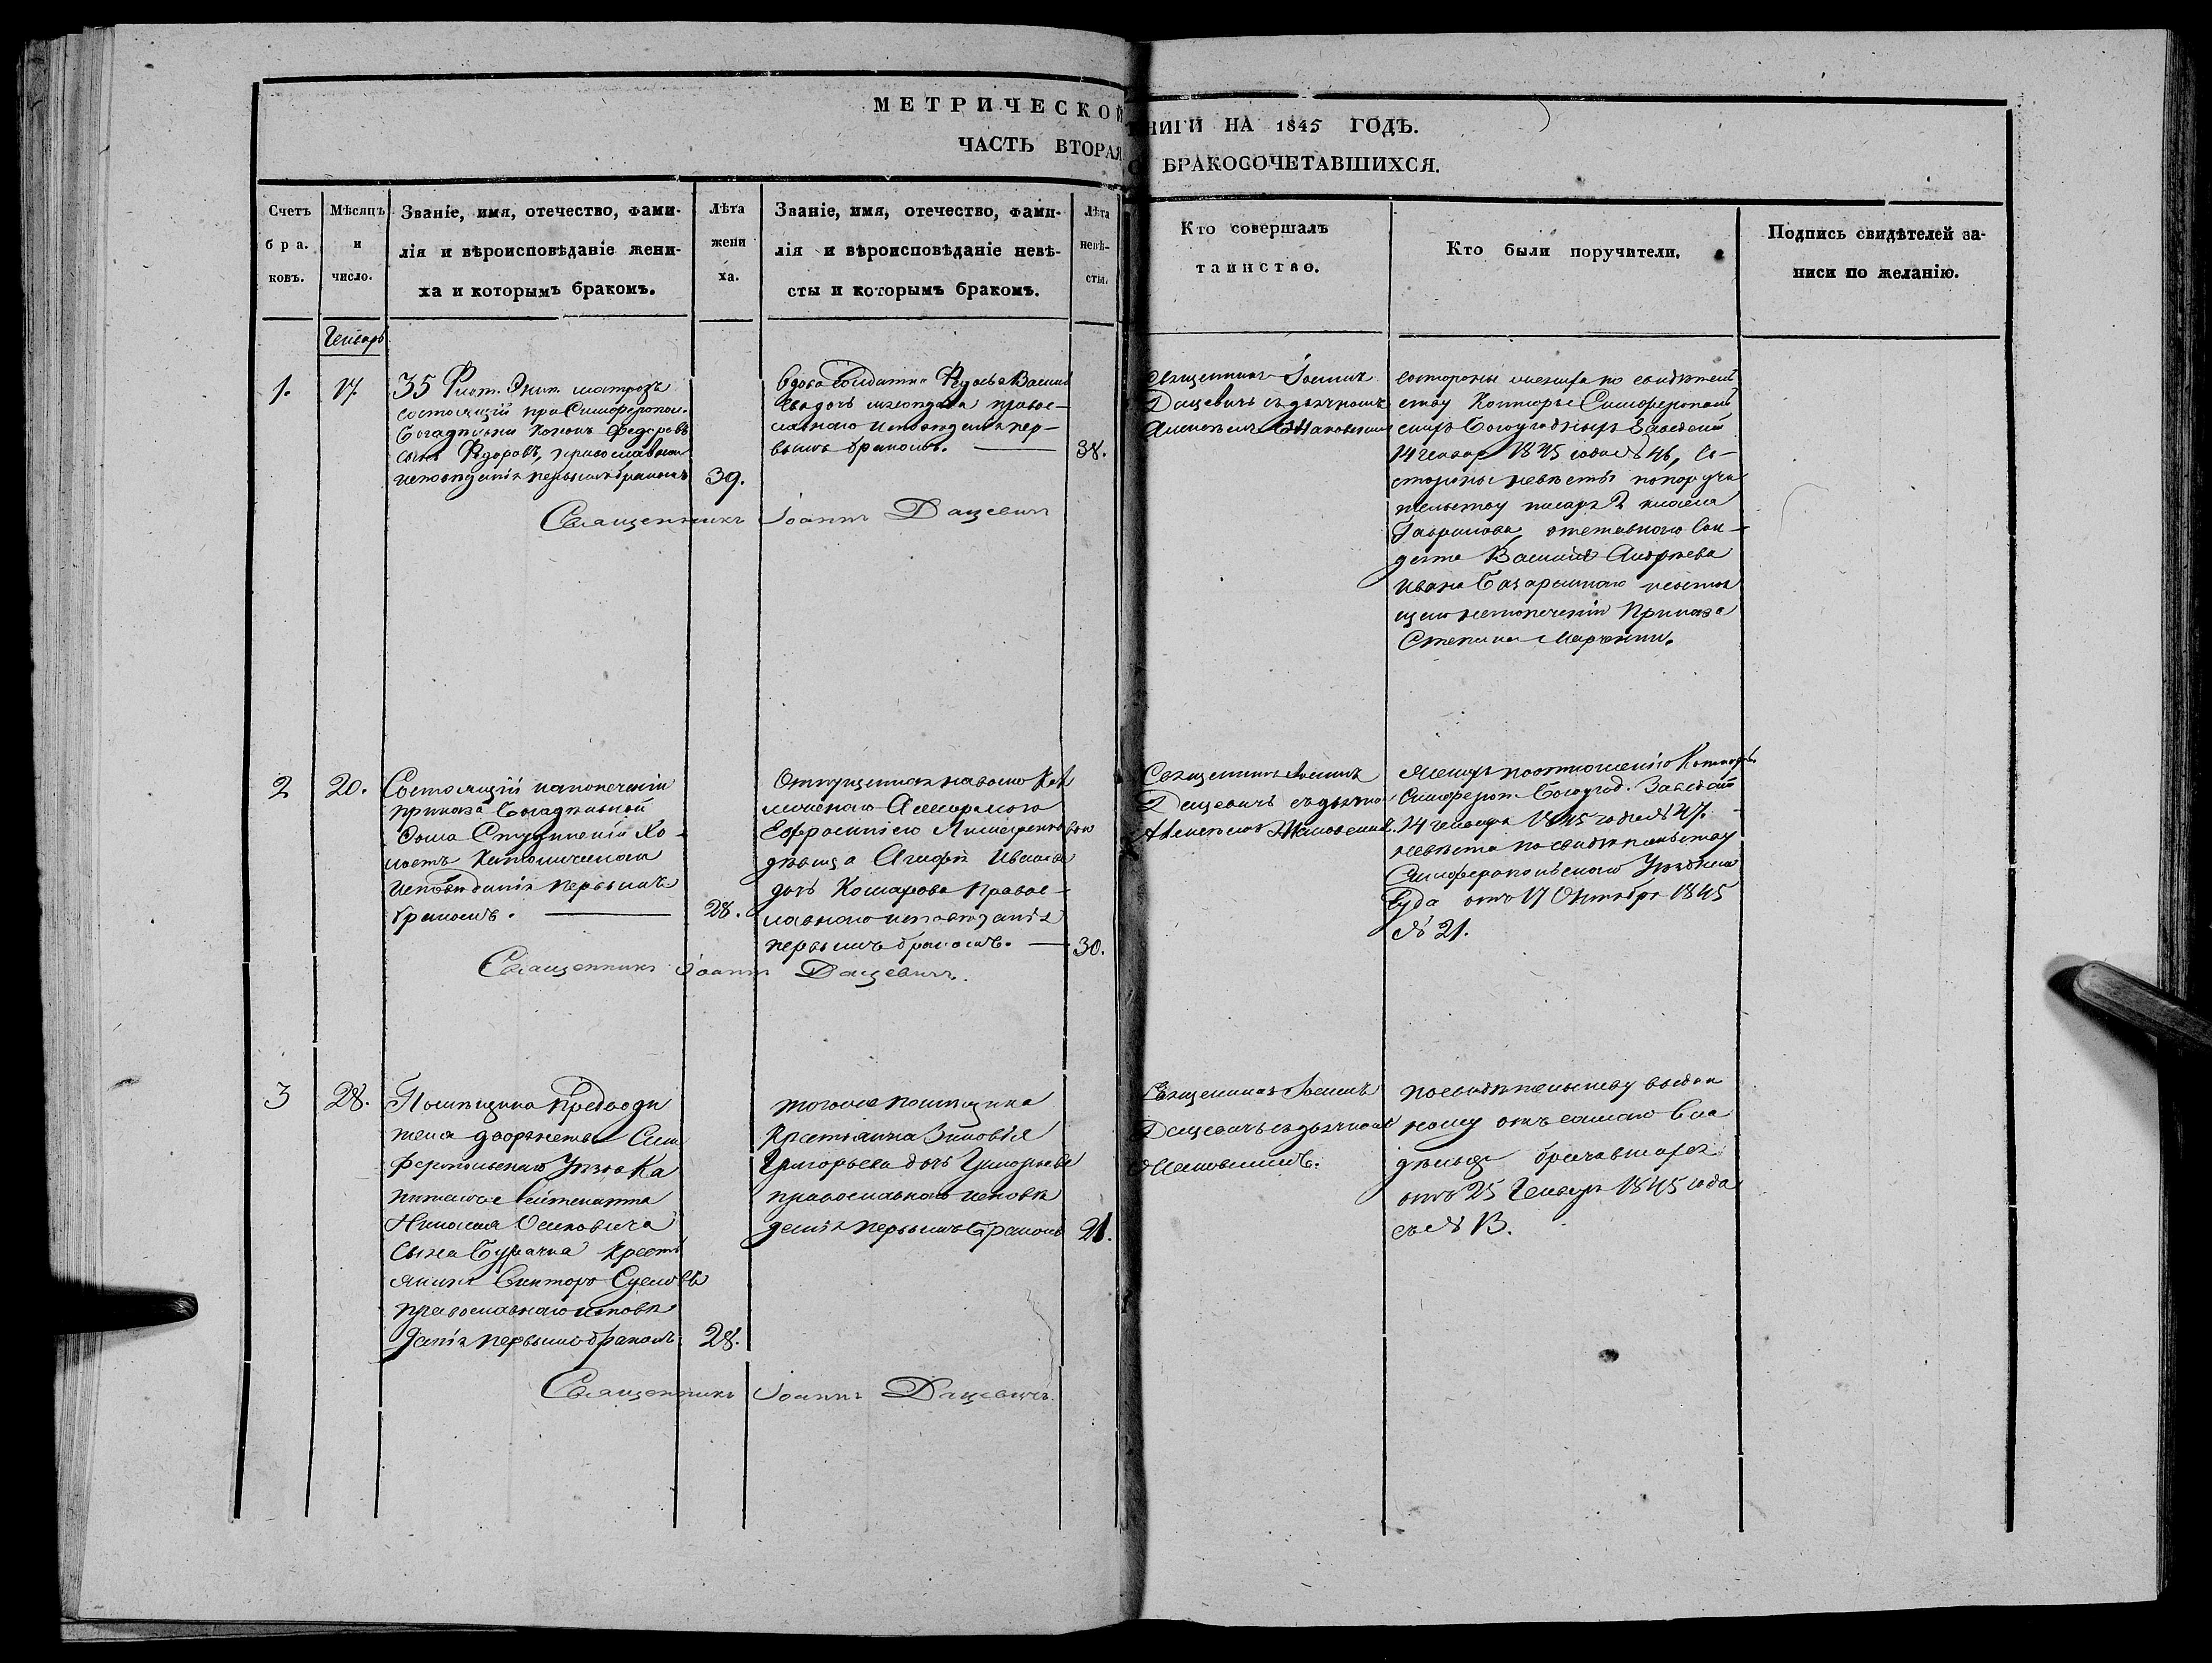 МЕТРИЧЕСКОЙ КНИГИ НА 1845 ГОДЪ.
ЧАСТЬ ВТОРАЯ О БРАКОСОЧЕТАВШИХСЯ.
Счетъ бра. ковъ.
Мѣсяцъ и число.
Званіе, имя, отечество, фами-
лія и вѣроисповѣданіе жени-
ха и которымъ бракомъ.
Лѣта жени ха.
Званіе, имя, отечество, фами-
лія и вѣроисповѣданіе невѣ-
сты и которымъ бракомъ.
Лѣта невѣ- сты.
Кто совершалъ
таинство.
Кто были поручители.
Подпись свидѣтелей за-
писи по желанію.
Генварь
1.
17.
35 Флот. Экип. матрозъ
состоящій при Симферопол.
Богадѣльни Кононъ Федоровъ
сынъ православнаго
исповѣданія первымъ бракомъ
39.
Вдова Солдатка
дочь православнаго исповѣданія пер-
вымъ бракомъ.
38.
Священникъ Іоаннъ
Дащевичъ съ дьячкомъ
Алексѣемъ
со стороны жениха по свидѣтель
ству Конторы Симферополь
скихъ Богоугодныхъ Заведеній
14 Генваря 1845 года № 46, со
стороны невѣсты по поручи
тельству писаря 2 класса
Гаврилова отставного Сол
дата Василія Андреева
Ивана и состоя
щаго на попеченіи Приказа
Степана
Священникъ Іоаннъ Дащевичъ
2
20.
Состоящій на попеченіи
приказа Богадѣльной
дома Студинскій Хо
лостъ Католическаго
исповѣданія первымъ
бракомъ.
28.
Отпущенная на волю
Ефросиніею
дѣвица Агафія Иванова
дочь Комарова Правос-
лавнаго исповѣданія
первымъ бракомъ.
30.
Священникъ Іоаннъ
Дащевичъ съ дьячко
Алексѣемъ
жениху по отношенію Конторы
Симфероп. Богоугод. Заведеній
14 Генваря 1845 года № 47.
невѣста по свидѣтельству
Симферопольскаго Уѣзднаго
Суда отъ 17 Октября 1845
№ 21.
Священникъ Іоаннъ Дащевичъ.
3
28.
Помѣщика Предводи
теля дворянства Сим
феропольскаго Уѣзда Ка
питана Лейтенанта
Николая Осиповича
сына Бурачка Кресть
янинъ
православнаго исповѣ
данія первымъ бракомъ
28.
тогоже помѣщика
Крестьянка Зиновія
Григорьева дочь Григорьева
православнаго исповѣ
данія первымъ бракомъ
21.
Священникъ Іоаннъ
Дащевичъ съ дьячкомъ
по свидѣтельству выдан
ному отъ самаго Вла
дѣльца брачавшихся
отъ 25 Генваря 1845 года
за № 13.
Священникъ Іоаннъ Дащевичъ.